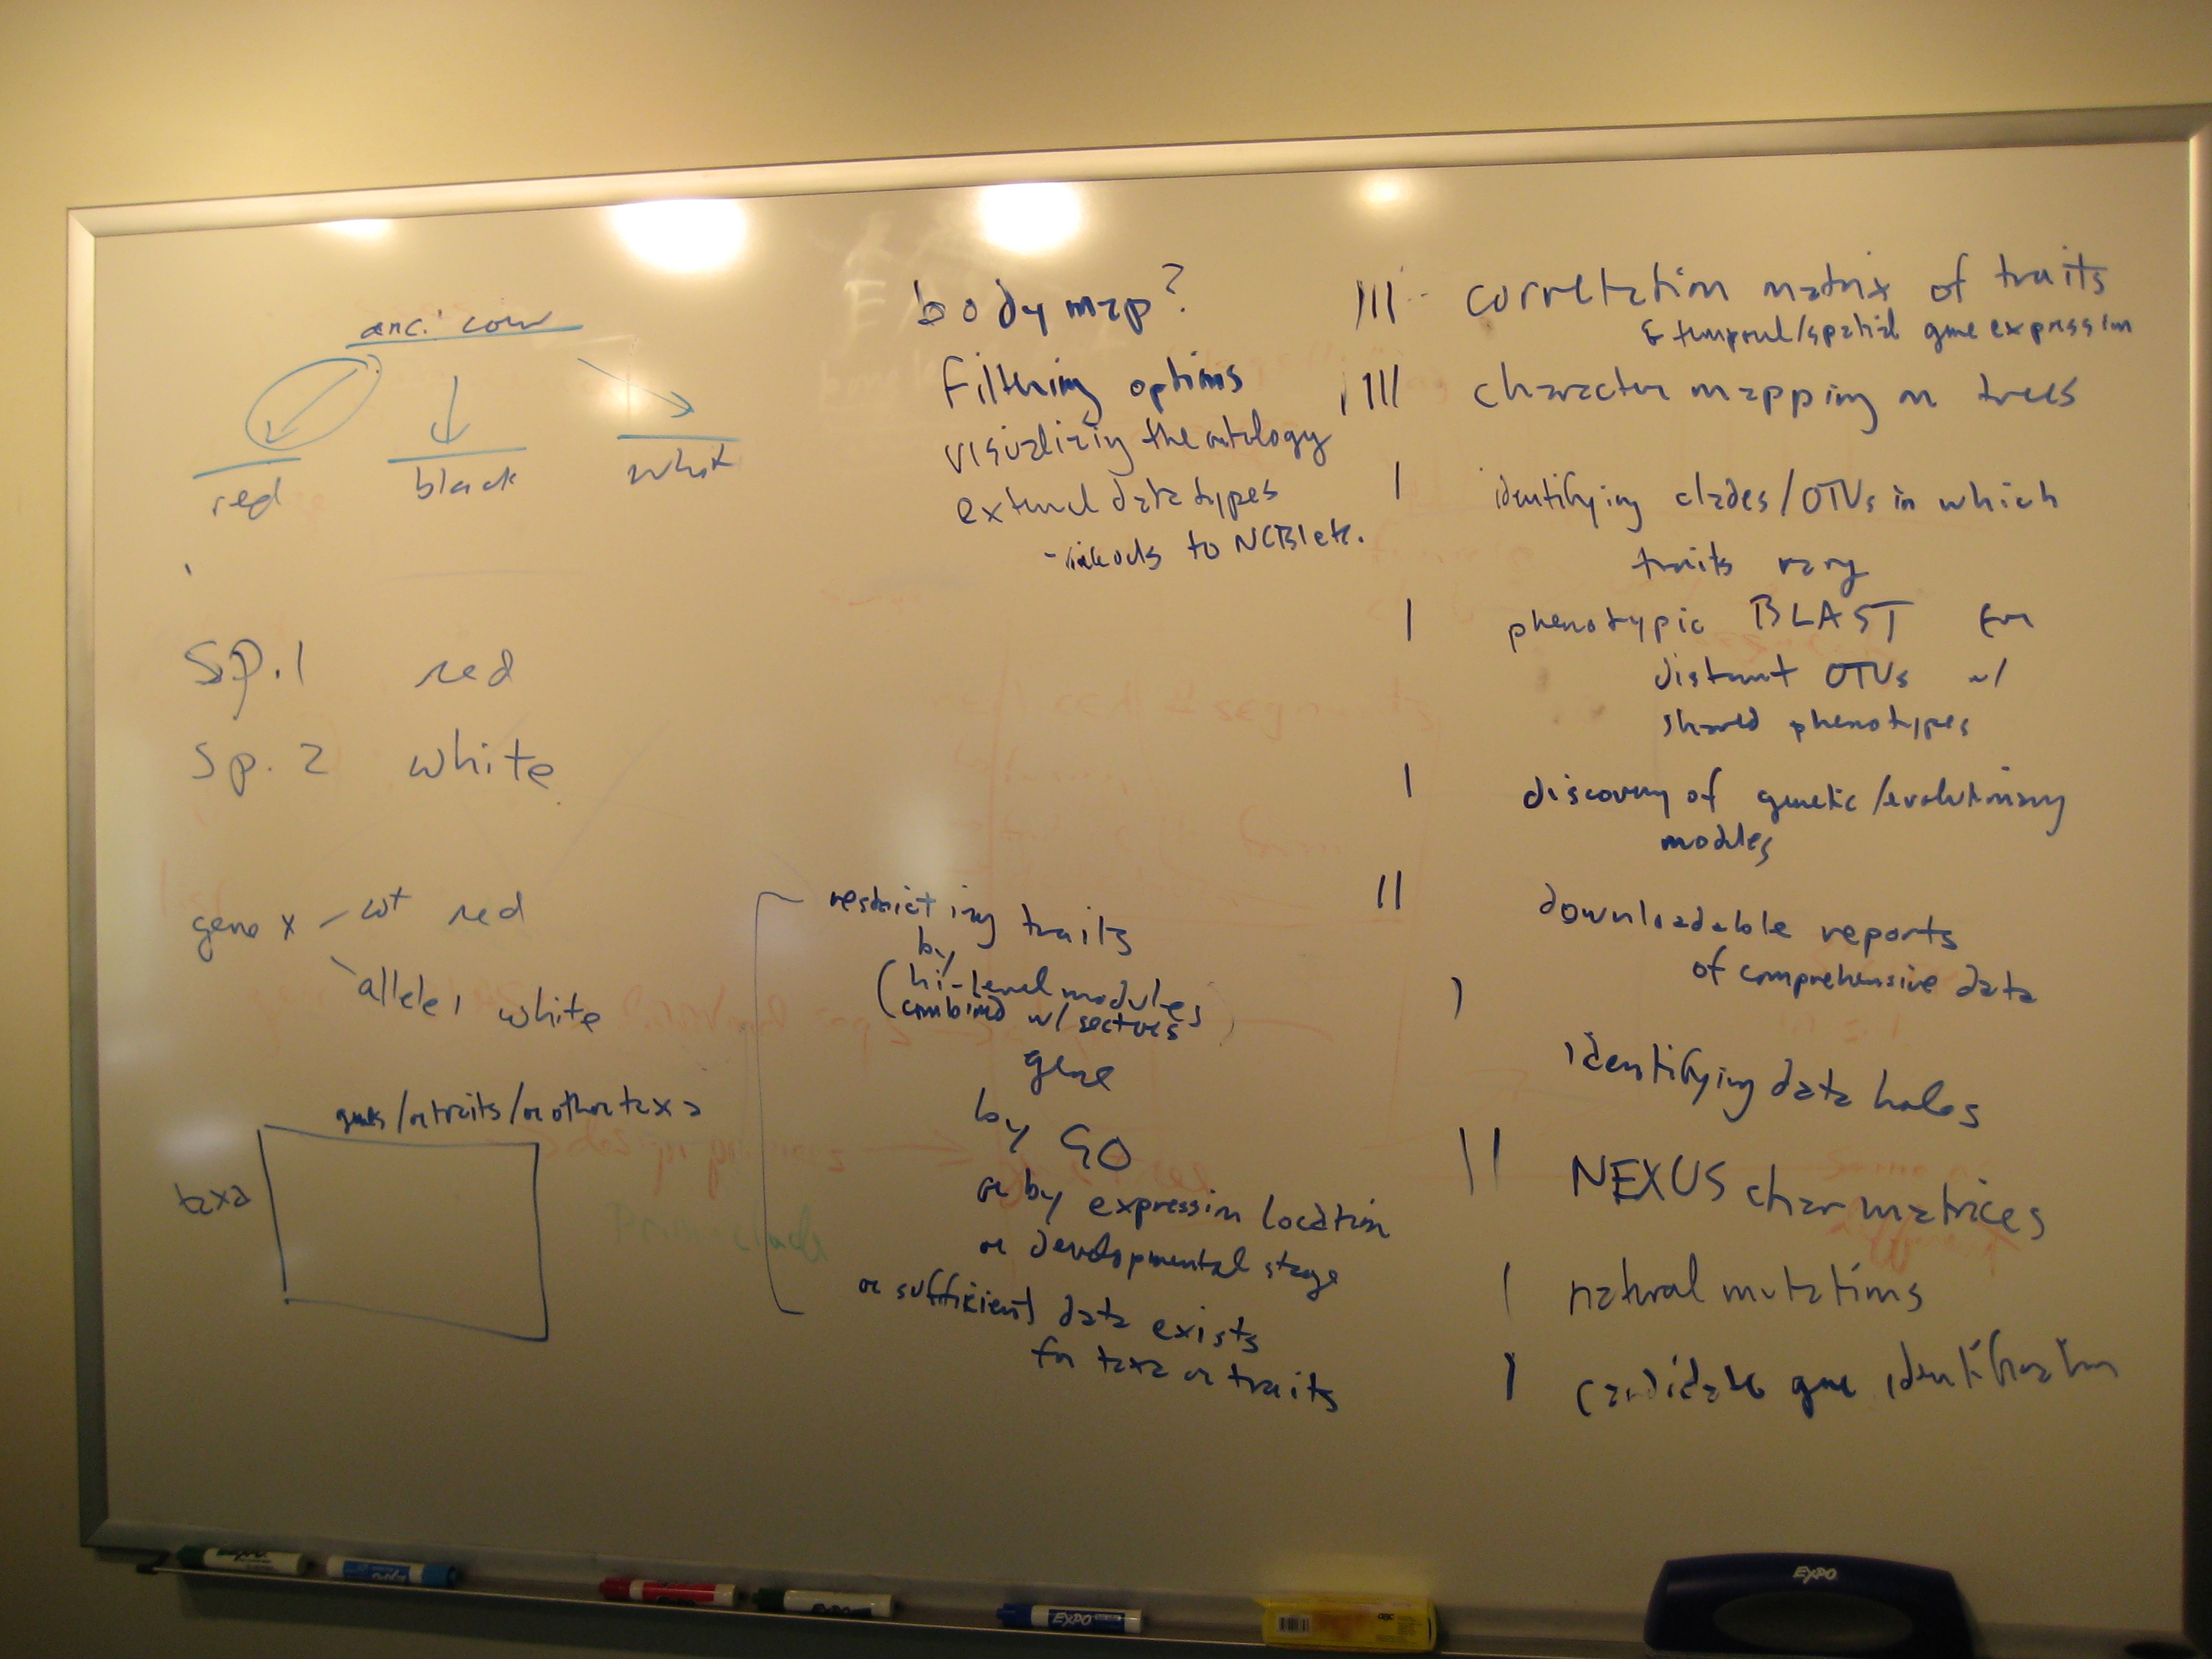 anc.
red
black
Sp. 1 red
Sp. 2 white
gene x - wt red
allele 1 white
genes/or traits/or other taxa
taxa
body map?
Filtering options
visualizing the ontology
external data types
- linkouts to NCBI etc.
restricting traits
by
(hi-level modules
combined w/
gene
by GO
or by expression location
or developmental stage
or sufficient data exists
for taxa or traits
||| correlation matrix of traits
& temporal/spatial gene expression
|||| character mapping on trees
| identifying clades/OTUs in which
traits vary
| phenotypic BLAST for
distant OTUs w/
shared phenotypes
| discovery of genetic/evolutionary
modules
|| downloadable reports
of comprehensive data
) identifying data holes
|| NEXUS char matrices
| natural mutations
| candidate gene identification
EXPO
EXPO